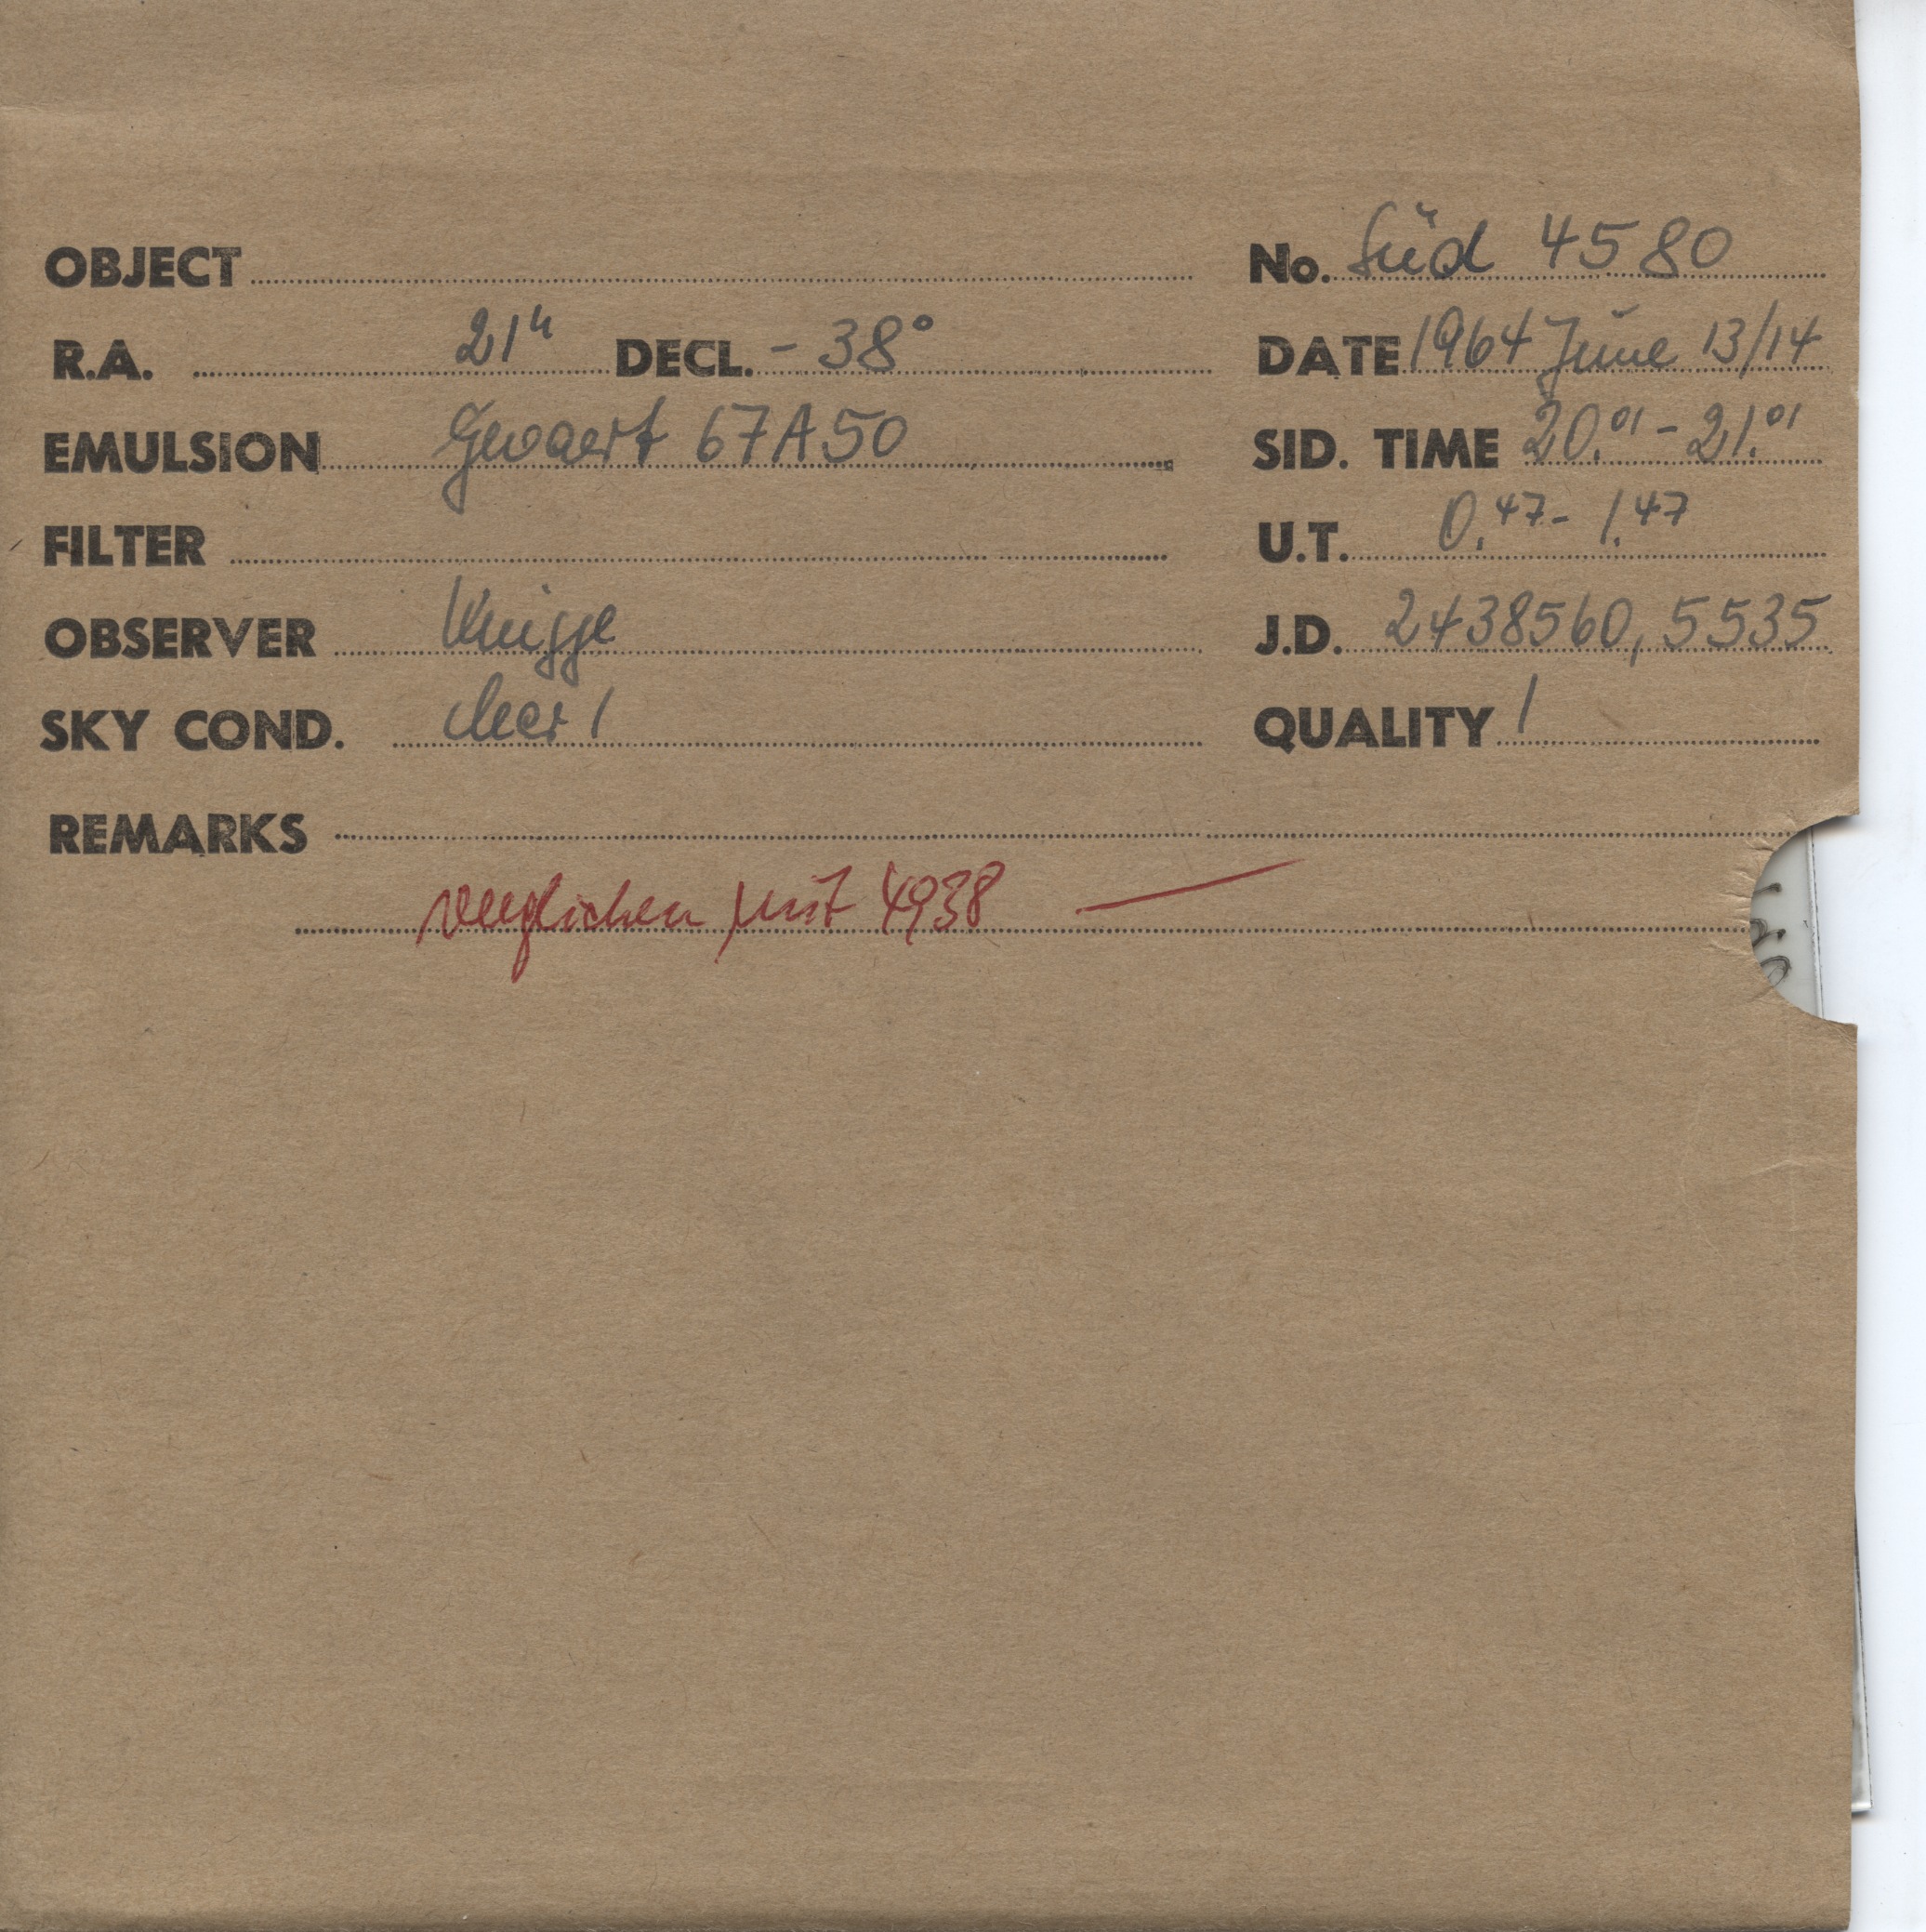 OBJECT
No. Süd 4580
R.A. 21h DECL. - 38°
DATE 1964 June 13/14
EMULSION Gevaert 67A50
SID. TIME 20.01 - 21.01
FILTER
U.T. 0.47 - 1.47
OBSERVER Knigge
J.D. 2438560,5535
SKY COND. clear 1
QUALITY 1
REMARKS
verglichen mit 4938 —